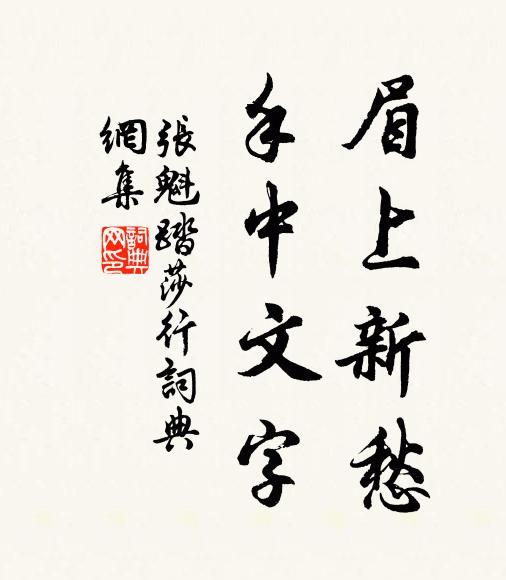 眉上新愁
手中文字
張魁踏莎行詞典
網集
詞典
网印